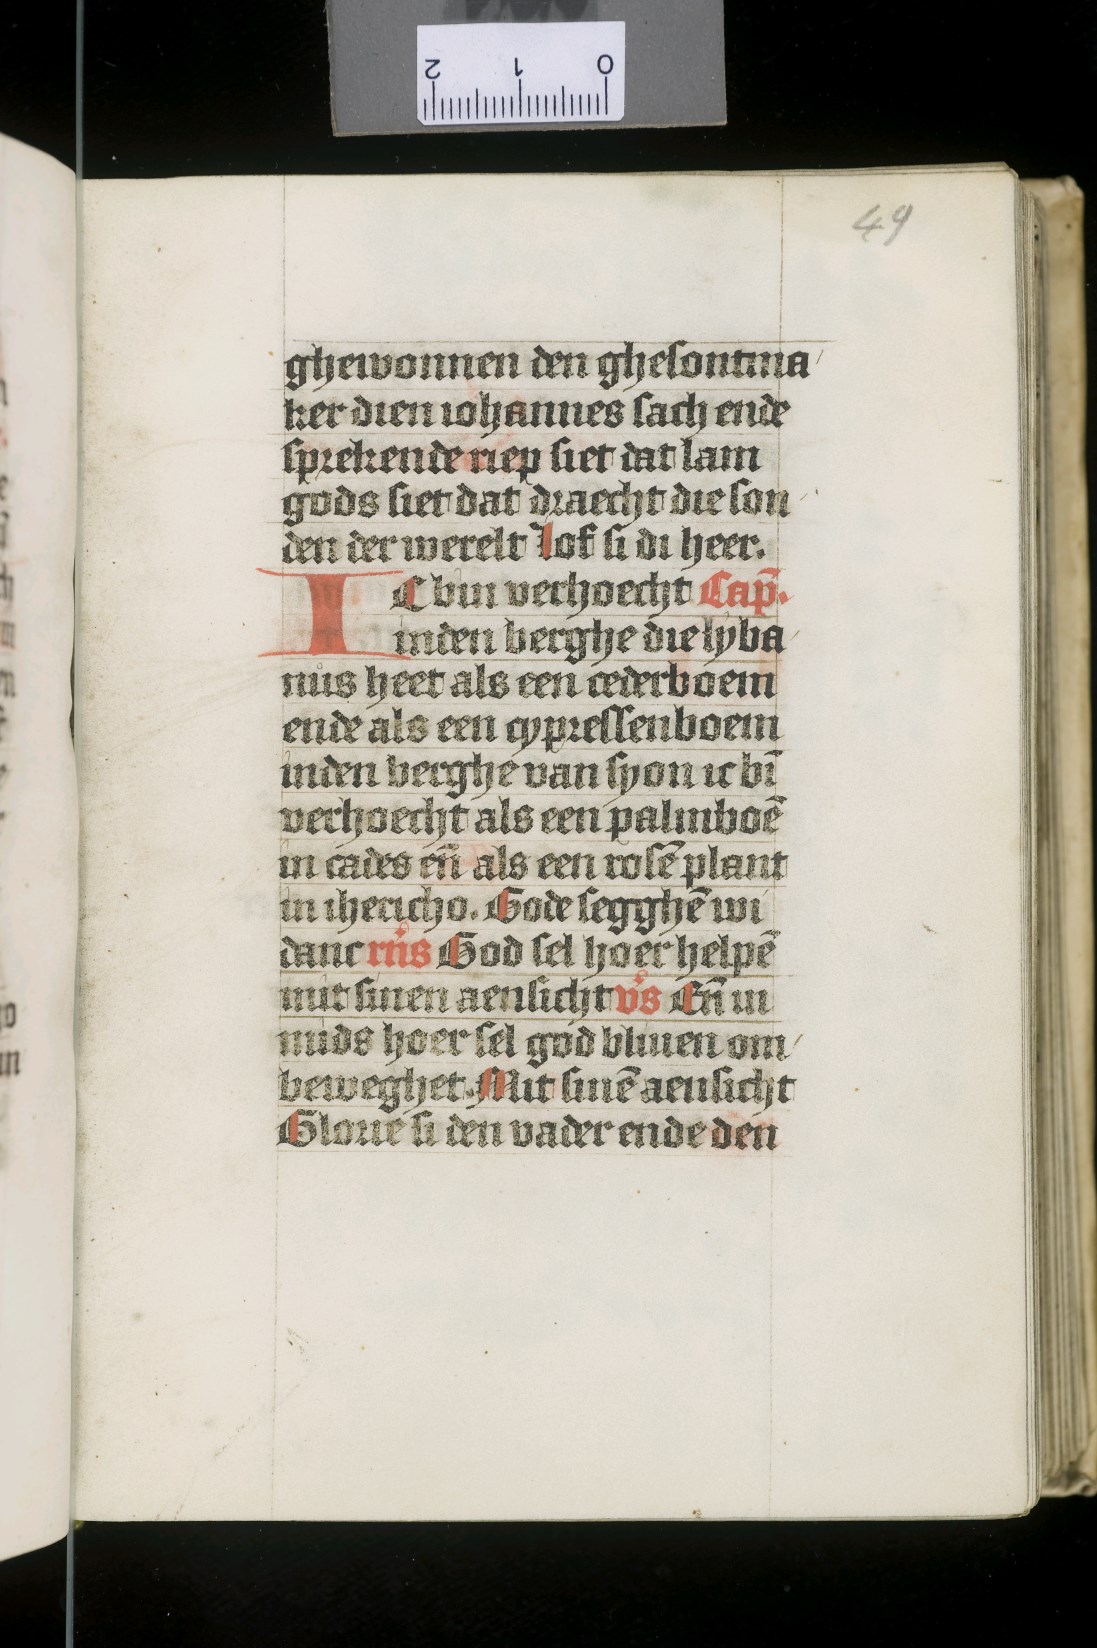 2 1 0
49
ghewonnen den ghesontma
ker dien iohannes sach ende
sprekende riep siet dat lam
gods siet dat draecht die son
den der werelt Lof si di heer.
IC bin verhoecht Cap̄.
inden berghe die lyba
nus heet als een cederboem
ende als een cypressenboem
inden berghe van syon ic bī
verhoecht als een palmboē
in cades eñ als een rosē plant
in ihericho. Gode segghē wi
danc rn̄s God sel hoer helpē
mit sinen aensicht v̄s Eñ in
mids hoer sel god bliuen om
beweghet. Mit sinē aensicht
Glorie si den vader ende den